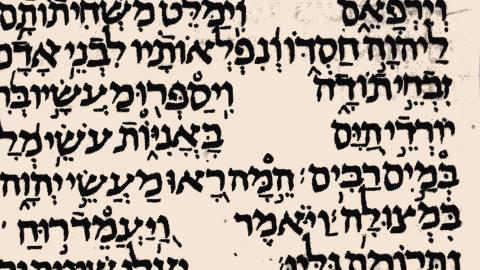 וְיִרְפָּאֵם וִימַלֵּט מִשְּׁחִיתוֹתָם
לַיהוָה חַסְדּוֹ וְנִפְלְאוֹתָיו לִבְנֵי אָדָם
זִבְחֵי תוֹדָה וִיסַפְּרוּ מַעֲשָׂיו
יוֹרְדֵי הַיָּם בָּאֳנִיּוֹת עֹשֵׂי
בְּמַיִם רַבִּים הֵמָּה רָאוּ מַעֲשֵׂי יְהוָה
בִּמְצוּלָה וַיֹּאמֶר וַיַּעֲמֵד רוּחַ
וַתְּרוֹמֵם גַּלָּיו יַעֲלוּ